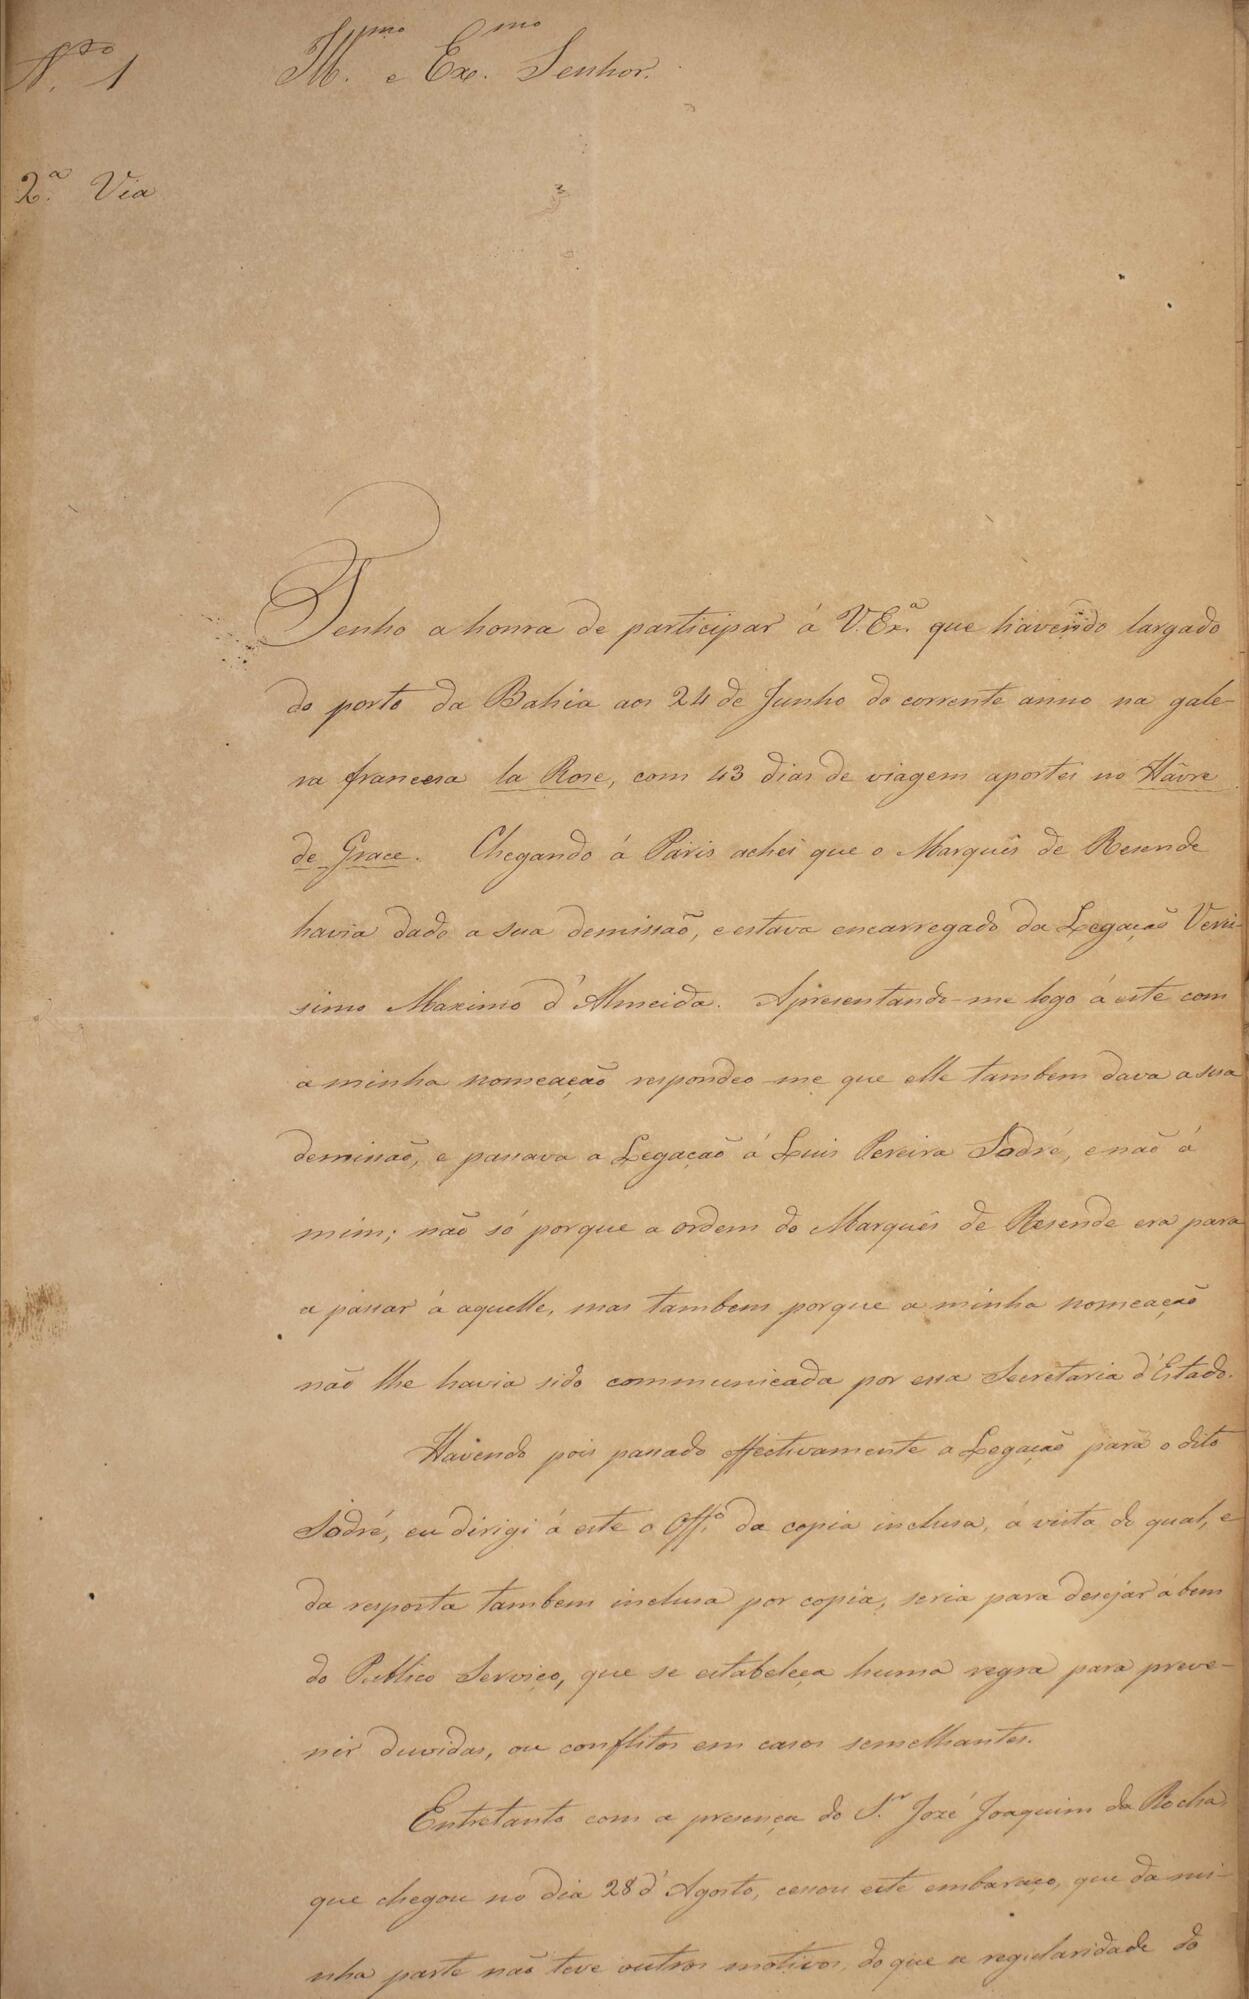 N.ro 1
Ill.mo e Ex.mo Senhor.
2.a Via
Tenho a honra de participar á V. Ex.a que havendo largado
do porto da Bahia aos 24 de Junho do corrente anno na gale-
ra francesa la Rose, com 43 dias de viagem aportei no Hâvre
de Grace. Chegando á Paris achei que o Marquês de Resende
havia dado a sua demissaõ, e estava encarregado da Legaçaõ Veris-
simo Maximo d'Almeida. Apresentando-me logo á este com
a minha nomeaçaõ respondeo-me que elle tambem dava a sua
demissaõ, e passava a Legaçaõ á Luis Pereira Sodré, e naõ á
mim; naõ só porque a ordem do Marquês de Resende era para
a passar á aquelle, mas tambem porque a minha nomeaçaõ
naõ lhe havia sido communicada por essa Secretaria d'Estado.
Havendo pois passado effectivamente a Legaçaõ para o dito
Sodré, eu dirigi á este o Off.o da copia inclusa, á vista do qual, e
da resposta tambem inclusa por copia, seria para desejar á bem
do Publico Serviço, que se estabeleça huma regra para preve-
nir duvidas, ou conflitos em casos semelhantes.
Entretanto com a presença do S.r Jozé Joaquim da Rocha,
que chegou no dia 28 d'Agosto, cessou este embaraço, que da mi-
nha parte naõ teve outros motivos, do que a regularidade do